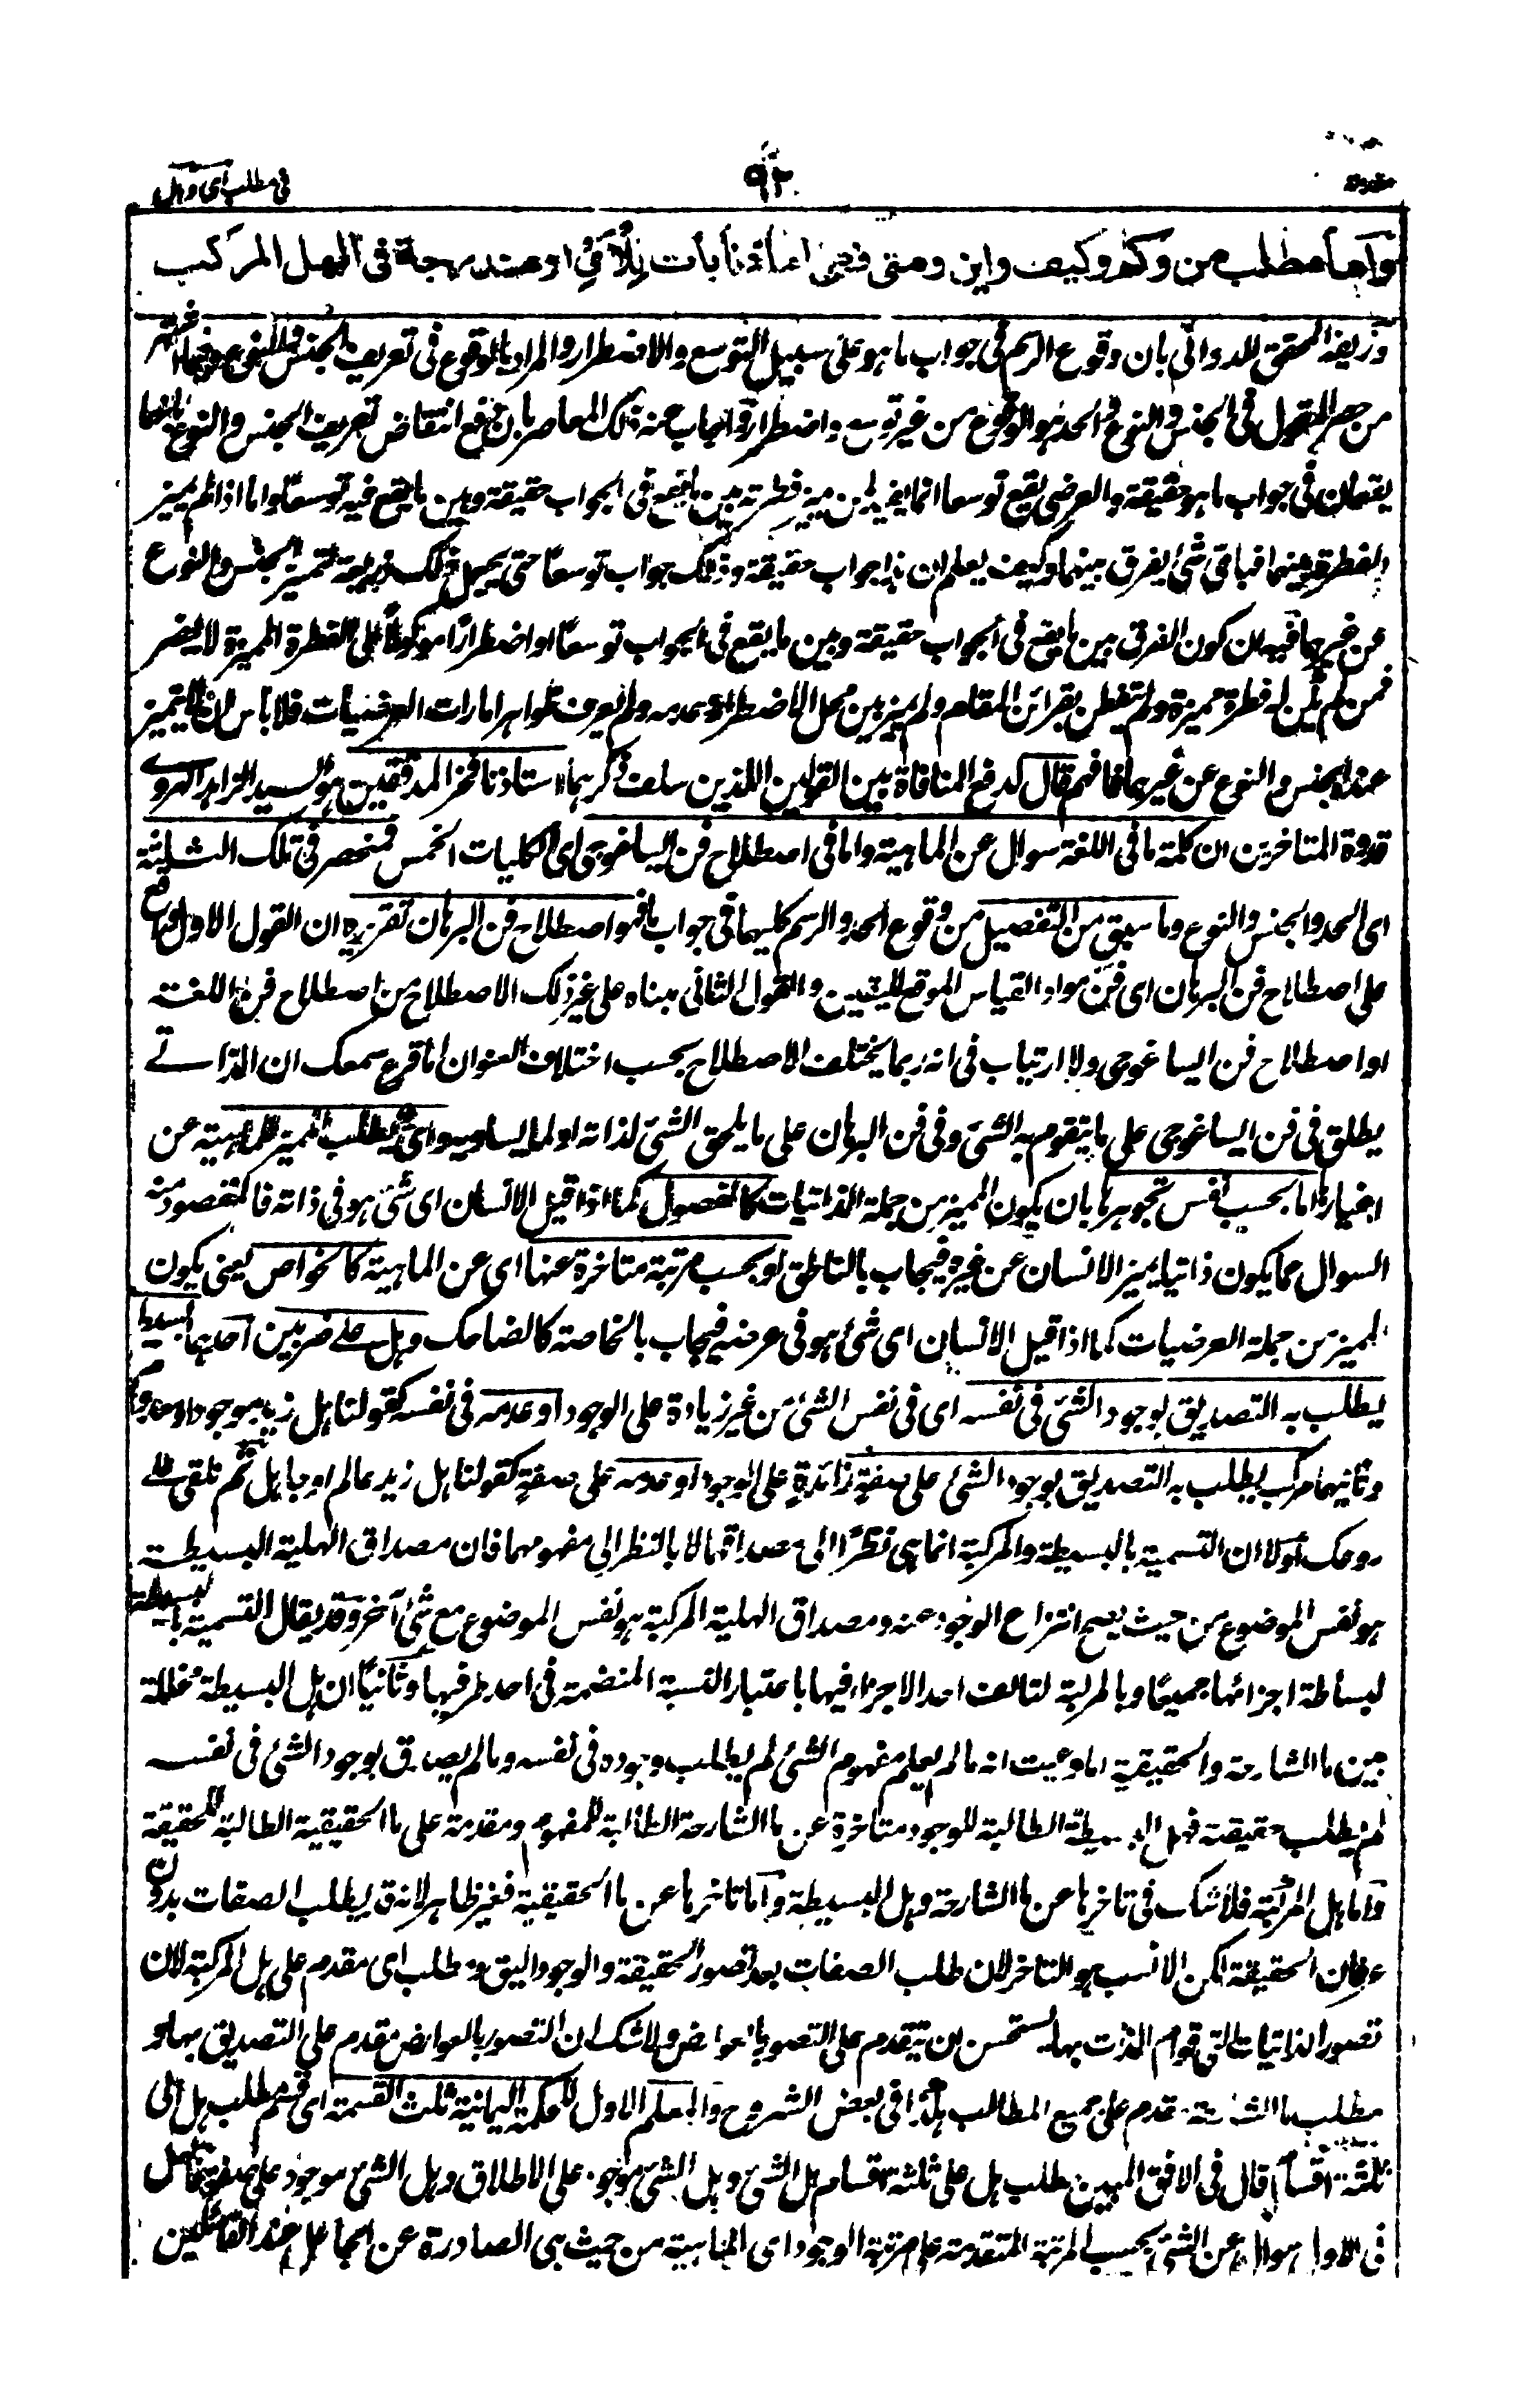 مقدمة
٩٢
فى مطلب اى وهل
واما مطلب من وكم وكيف واين ومتى فهى اما ذنابات للاى او مندرجة فى الهل المركب
وزيفه المحقق الدوانى بان وقوع الرسم فى جواب ما هو على سبيل التوسع والاضطرار والمراد بالوقوع فى تعريف الجنس والنوع
من حصر المقول فى الجنس والنوع والحد هو الوقوع من غير توسع واضطرار واجاب عنه ذلك المعاصر بان دفع انتقاض تعريف الجنس والنوع بانهما
يقعان فى جواب ما هو حقيقة والعرضى يقع توسعا انما يفيد لمن ميز فطرته بين ما يقع فى الجواب حقيقة وبين ما يقع فيه توسعا واما اذا لم يميز
الفطرة بينهما فباى شئ يفرق بينهما وكيف يعلم ان هذا جواب حقيقة وذلك جواب توسعا حتى يجعل ذلك ذريعة لتمييز الجنس والنوع
عن غيرهما فيه ان كون الفرق بين ما يقع فى الجواب حقيقة وبين ما يقع فى الجواب توسعا او اضطرارا موكولا على الفطرة المميزة لا يضر
فمن لم يكن له فطرة مميزة ولم يتفطن بقرائن المقام ولم يميز بين محل الاضطرار وعدمه ولم يعرف ظواهر امارات العرضيات فلا باس ان لا يتميز
عنده الجنس والنوع عن غيرهما فافهم قال لدفع المنافاة بين القولين اللذين سلف ذكرهما استاذنا فخر المدققين هو السيد الزاهد الهروى
قدوة المتاخرين ان كلمة ما فى اللغة سوال عن الماهية واما فى اصطلاح فن ايساغوجى اى الكليات الخمس فمنحصر فى تلك الثلثة
اى الحد والجنس والنوع وما سبق من التفصيل من وقوع الحد والرسم كليهما فى جواب ما فهو اصطلاح فن البرهان تقريره ان القول الاول واقع
على اصطلاح فن البرهان اى فن مواد القياس الموقع لليقين والقول الثانى مبناه على غير ذلك الاصطلاح من اصطلاح فن اللغة
او اصطلاح فن ايساغوجى ولا ارتياب فى انه ربما يختلف الاصطلاح بحسب اختلاف العنوان اما قرع سمعك ان الذاتى
يطلق فى فن ايساغوجى على ما يتقوم به الشئ وفى فن البرهان على ما يلحق الشئ لذاته او لما يساويه واى يطلب المميز للماهية عن
اغيارها اما بحسب نفس تجوهرها بان يكون المميز من جملة الذاتيات كالفصول كما اذا قيل الانسان اى شئ هو فى ذاته فالمقصود منه
السوال عما يكون ذاتيا يميز الانسان عن غيره فيجاب بالناطق او بحسب مرتبة متاخرة عنها اى عن الماهية كالخواص يعنى يكون
المميز من جملة العرضيات كما اذا قيل الانسان اى شئ هو فى عرضه فيجاب بالخاصة كالضاحك وهل على ضربين احدهما بسيط
يطلب به التصديق بوجود الشئ فى نفسه اى فى نفس الشئ من غير زيادة على الوجود او عدمه فى نفسه كقولنا هل زيد موجود او معدوم
وثانيهما مركب يطلب به التصديق بوجود الشئ على صفة زائدة على الوجود او عدمه على صفة كقولنا هل زيد عالم او جاهل ثم نلقى على
روعك اولا ان التسمية بالبسيطة والمركبة انما هى نظرا الى مصداقهما لا بالنظر الى مفهومهما فان مصداق الهلية البسيطة
هو نفس الموضوع من حيث يصح انتزاع الوجود عنه ومصداق الهلية المركبة هو نفس الموضوع مع شئ آخر وقد يقال القسمية بالبسيطة
لبساطة اجزائها جميعا وبالمركبة لتالف احد الاجزاء فيها باعتبار النسبة المنضمة فى احد طرفيها وثانيا ان هل البسيطة متخللة
بين ما الشارحة والحقيقية اما وعيت انه ما لم يعلم مفهوم الشئ لم يطلب وجوده فى نفسه وما لم يصدق بوجود الشئ فى نفسه
لم يطلب حقيقته فهل البسيطة الطالبة للوجود متاخرة عن ما الشارحة الطالبة للمفهوم ومقدمة على ما الحقيقية الطالبة للحقيقة
واما هل المركبة فلا شك فى تاخرها عن ما الشارحة وهل البسيطة واما تاخرها عن ما الحقيقية فغير ظاهر لانه قد يطلب الصفات بدون
عرفان الحقيقة لكن الانسب هو التاخر لان طلب الصفات بعد تصور الحقيقة والوجود اليق ومطلب اى مقدم على هل المركبة لان
تصور الذاتيات التى قوام الذات بها يستحسن ان يتقدم على التصور بالعوارض ولا شك ان التصور بالعوارض مقدم على التصديق بها و
مطلب ما الشارحة مقدم على جميع المطالب هكذا فى بعض الشروح والمعلم الاول للحكمة اليمانية ثلث القسمة اى قسم مطلب هل الى
ثلثة اقسام قال فى الافق المبين مطلب هل على ثلثة اقسام هل الشئ وهل الشئ موجود على الاطلاق وهل الشئ موجود على صفة
فى الاول سوال عن الشئ بحسب المرتبة المتقدمة على مرتبة الوجود اى الماهية من حيث هى الصادرة عن الجاعل عند القائلين